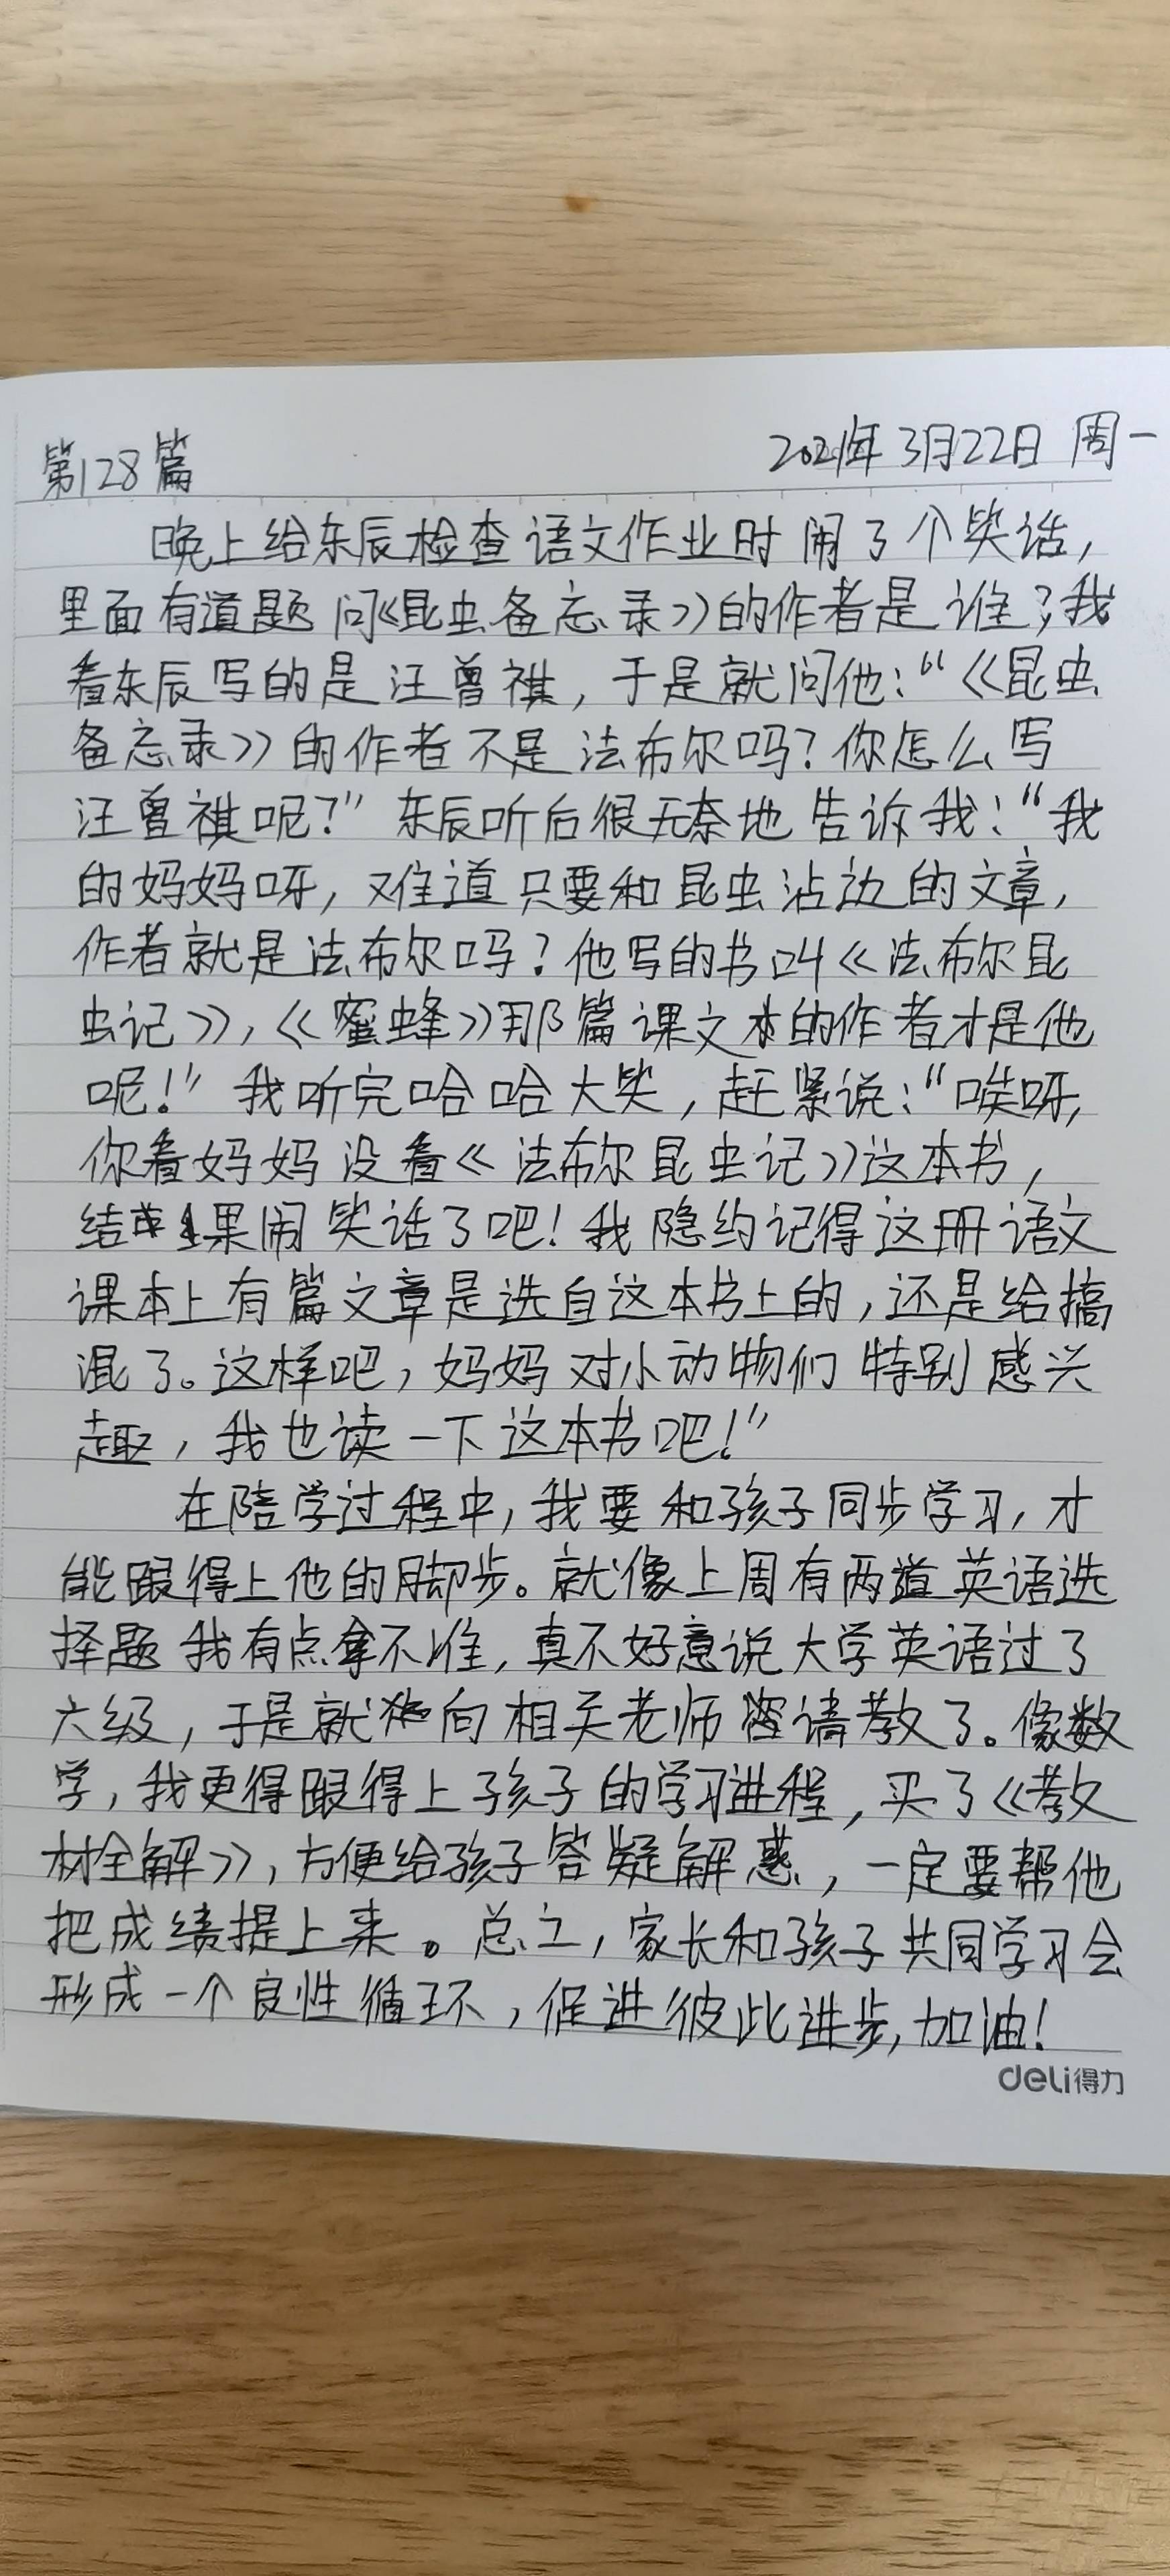 第128篇 2021年3月22日 周一
晚上给东辰检查语文作业时闹了个笑话,
里面有道题问《昆虫备忘录》的作者是谁?我
看东辰写的是汪曾祺,于是就问他:“《昆虫
备忘录》的作者不是法布尔吗?你怎么写
汪曾祺呢?”东辰听后很无奈地告诉我:“我
的妈妈呀,难道只要和昆虫沾边的文章,
作者就是法布尔吗?他写的书叫《法布尔昆
虫记》,《蜜蜂》那篇课文的作者才是他
呢!”我听完哈哈大笑,赶紧说:“唉呀,
你看妈妈没看《法布尔昆虫记》这本书,
结果闹笑话了吧!我隐约记得这册语文
课本上有篇文章是选自这本书上的,还是给搞
混了。这样吧,妈妈对小动物们特别感兴
趣,我也读一下这本书吧!”
在陪学过程中,我要和孩子同步学习,才
能跟得上他的脚步。就像上周有两道英语选
择题我有点拿不准,真不好意说大学英语过了
六级,于是就向相关老师请教了。像数
学,我更得跟得上孩子的学习进程,买了《教
材全解》,方便给孩子答疑解惑,一定要帮他
把成绩提上来。总之,家长和孩子共同学习会
形成一个良性循环,促进彼此进步,加油!
deli得力